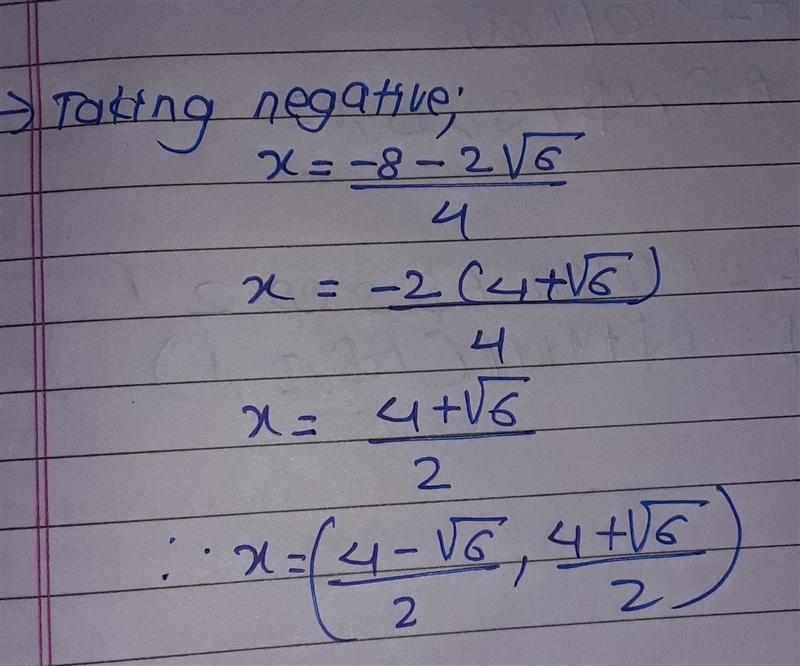 → Taking negative;
x = -8 - 2√6 / 4
x = -2 (4+√6) / 4
x = 4+√6 / 2
∴ x = (4-√6 / 2, 4+√6 / 2)